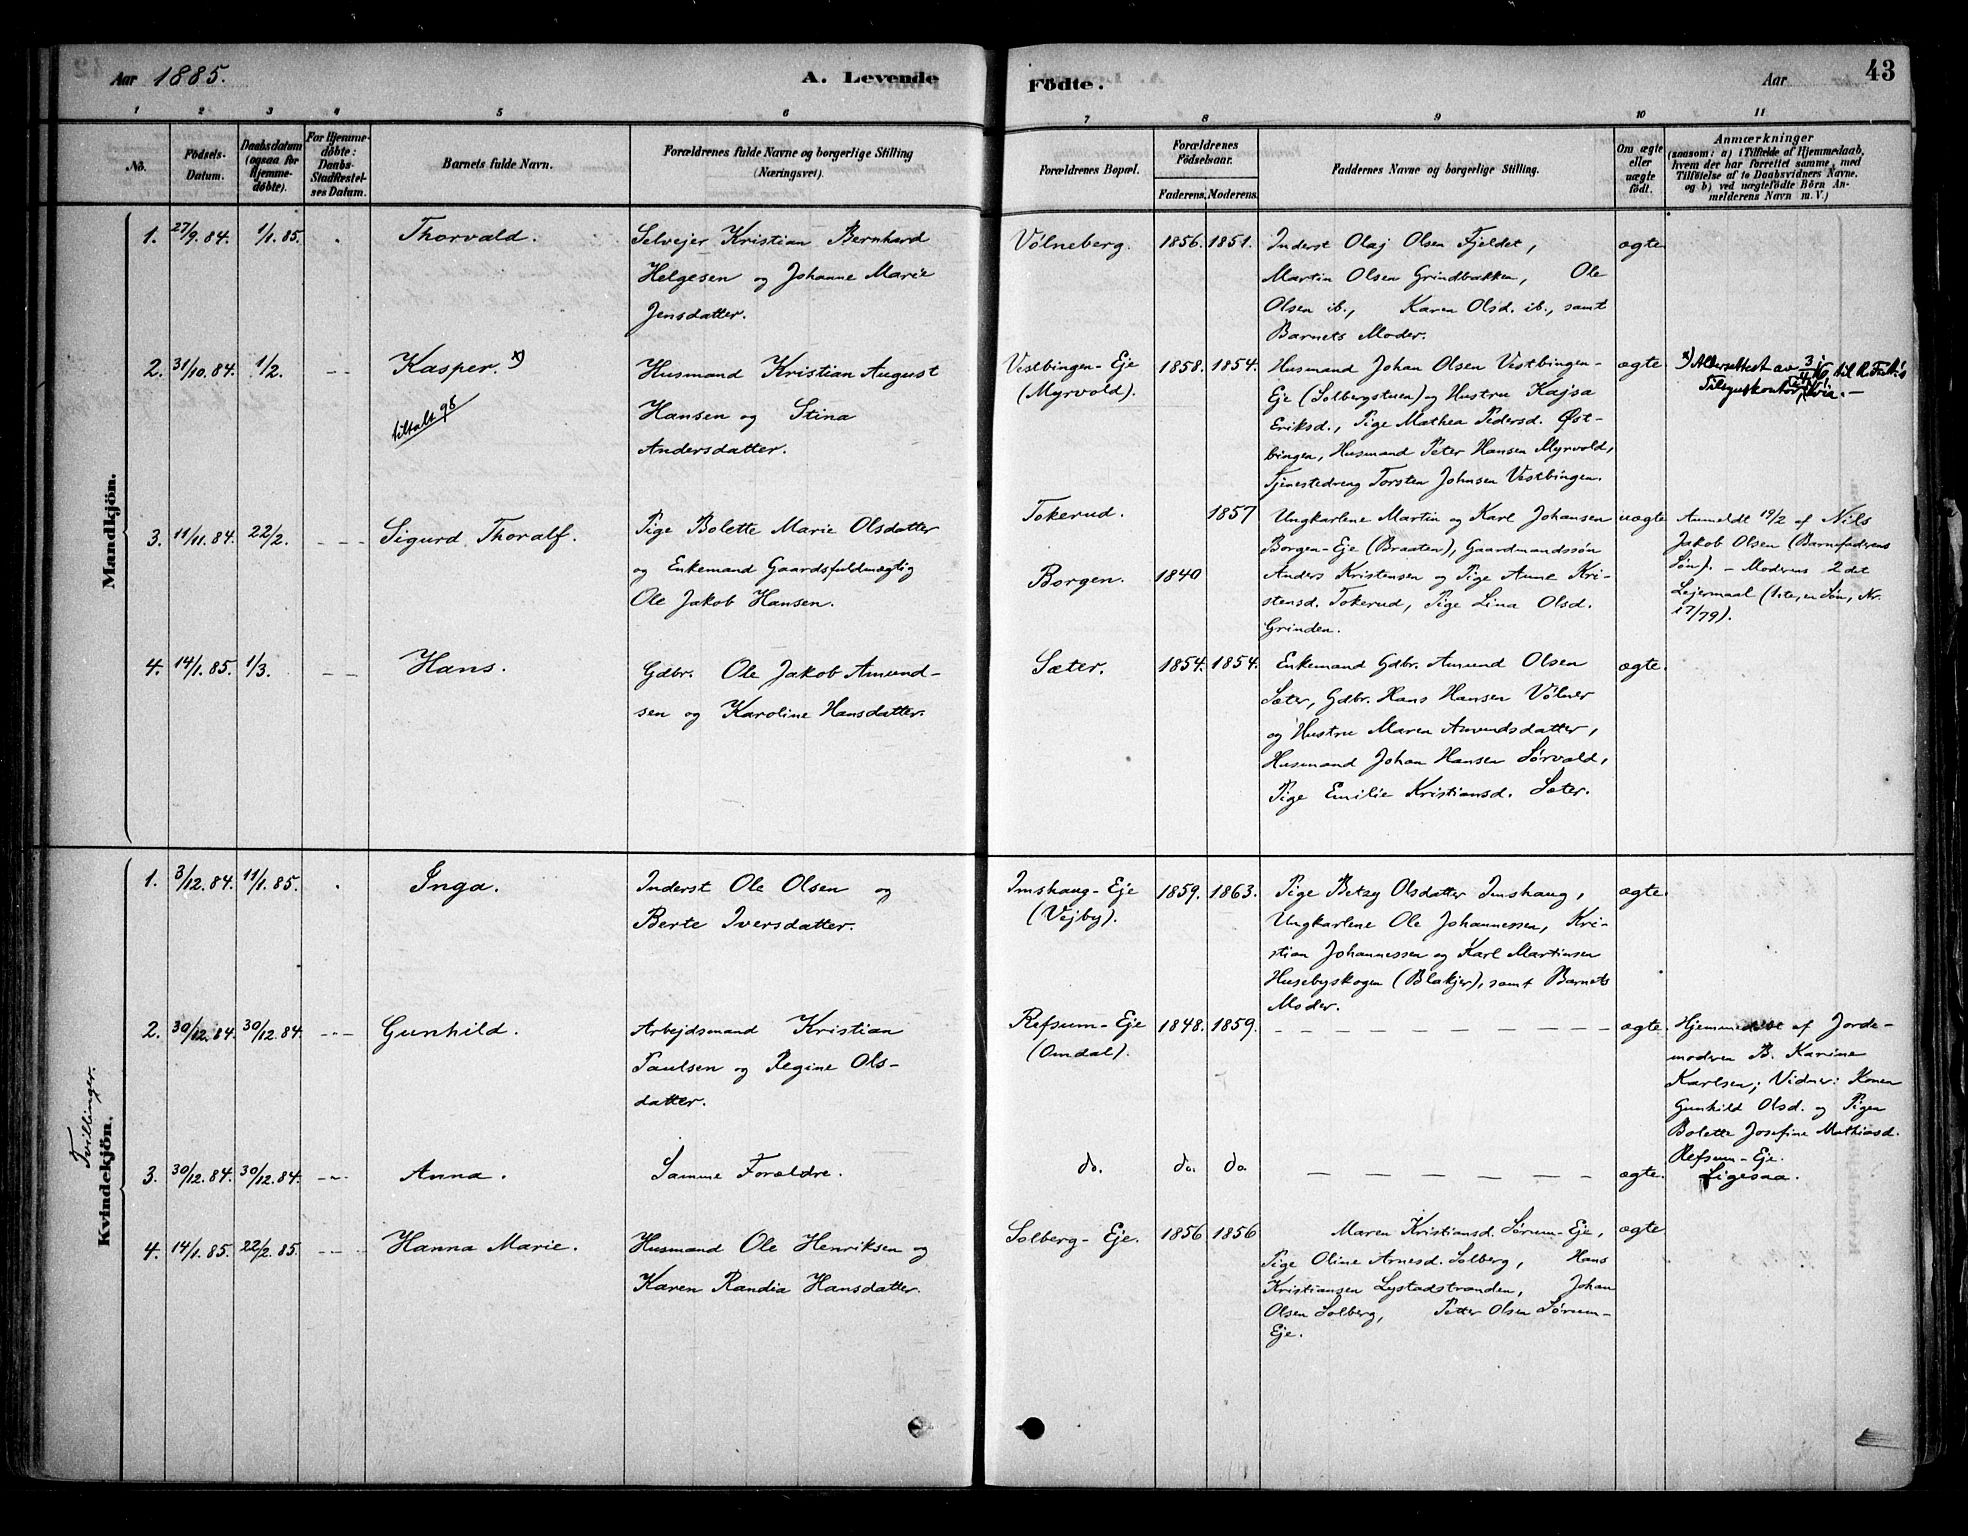 Aar 1885.
A. Levende
1 2 3 4 5 6
No.
Fødsels-Datum.
Daabsdatum (ogsaa for Hjemme-døbte).
For Hjemme-døbte: Daabs-Stadfæstel-ses Datum.
Barnets fulde Navn.
Forældrenes fulde Navne og borgerlige Stilling (Næringsvei).
Mandkjön.
1. 27/9.84. 1/1.85. Thorvald. Selvejer Kristian Bernhard
Helgesen og Johanne Marie
Jensdatter.
2. 31/10.84. 1/2. -- Kasper. x) Husmand Kristian August
tiltalt 98
Hansen og Stina
Andersdatter.
3. 11/11.84. 22/2. --- Sigurd Thoralf. Pige Bolette Marie Olsdatter
og Enkemand Gaardsfuldmægtig
Ole Jakob Hansen.
4. 14/1.85. 1/3. -- Hans. Gdbr. Ole Jakob Amund-
sen og Karoline Hansdatter.
Tvillinger.
Kvindekjön.
1. 3/12.84. 11/1.85. Inga. Inderst Ole Olsen og
Berte Iversdatter.
2. 30/12.84. 30/12.84. --- Gunhild. Arbejdsmand Kristian
Paulsen og Regine Ols-
datter.
3. 30/12.84. 30/12.84. --- Anna. Samme Forældre.
4. 14/1.85. 22/2.85. --- Hanna Marie. Husmand Ole Henriksen og
Karen Randia Hansdatter.
Födte.
Aar
43
7 8 9 10 11
Forældrenes Bopæl.
Forældrenes Fødselsaar.
Faderens. Moderens.
Faddernes Navne og borgerlige Stilling.
Om ægte eller uægte født.
Anmærkninger
(saasom: a) i Tilfælde af Hjemmedaab,
hvem der har forrettet samme, med
Tilføielse af to Daabsvidners Navne,
og b) ved uægtefødte Börn An-
melderens Navn m. V.)
Völneberg. 1856. 1851. Inderst Olaj Olsen Fjeldet, ægte
Martin Olsen Grindbakken, Ole
Olsen ib., Karen Olsd. ib., samt
Barnets Moder.
Vestbingen-Eje 1858. 1854. Husmand Johan Olsen Vestbingen- ægte. x) Aldersattest
(Myrvold). Eje (Solbergstuen) og Hustru Kajsa
Eriksd., Pige Mathea Pedersd. Øst-
bingen, Husmand Peter Hansen Myrvold,
Tjenestedreng Torsten Johnsen Vestbingen.
Tokerud. 1857 Ungkarlene Martin og Karl Johansen uægte Anmeldt 19/2 af Nils
Borgen-Eje (Braaten), Gaardmandssön Jakob Olsen (Barnefaderens
Borgen. 1840 Anders Kristensen og Pige Anne Kri- Sön). - Moderens 2det
stensd. Tokerud, Pige Lina Olsd. Lejermaal (1ste, en Sön, Nr.
Grinden. 17/79).
Sæter. 1854. 1854. Enkemand Gdbr. Amund Olsen ægte.
Sæter, Gdbr. Hans Hansen Völner
og Hustru Maren Amundsdatter,
Husmand Johan Hansen Sørvald,
Pige Emilie Kristiansd. Sæter.
Imshaug-Eje 1859. 1863. Pige Betzy Olsdatter Imshaug, ægte.
(Vejby). Ungkarlene Ole Johannessen, Kri-
stian Johannessen og Karl Martinsen
Husebyskogen (Blakjer), samt Barnets
Moder.
Refsum-Eje 1848. 1859. — — — — — — — ægte. Hjemmedøbt af Jorde-
(Omdal). moderen B. Karine
Karlsen; Vidner: Konen
Gunhild Olsd. og Pigen
Bolette Josefine Mathiasd.
Refsum-Eje.
do. do. do. — — — — — — ægte. Ligesaa.
Solberg-Eje. 1856 1856 Maren Kristiansd. Sørum-Eje, ægte
Pige Oline Arnesd. Solberg, Hans
Kristiansen Lystadstranden, Johan
Olsen Solberg, Petter Olsen Sörum-
Eje.